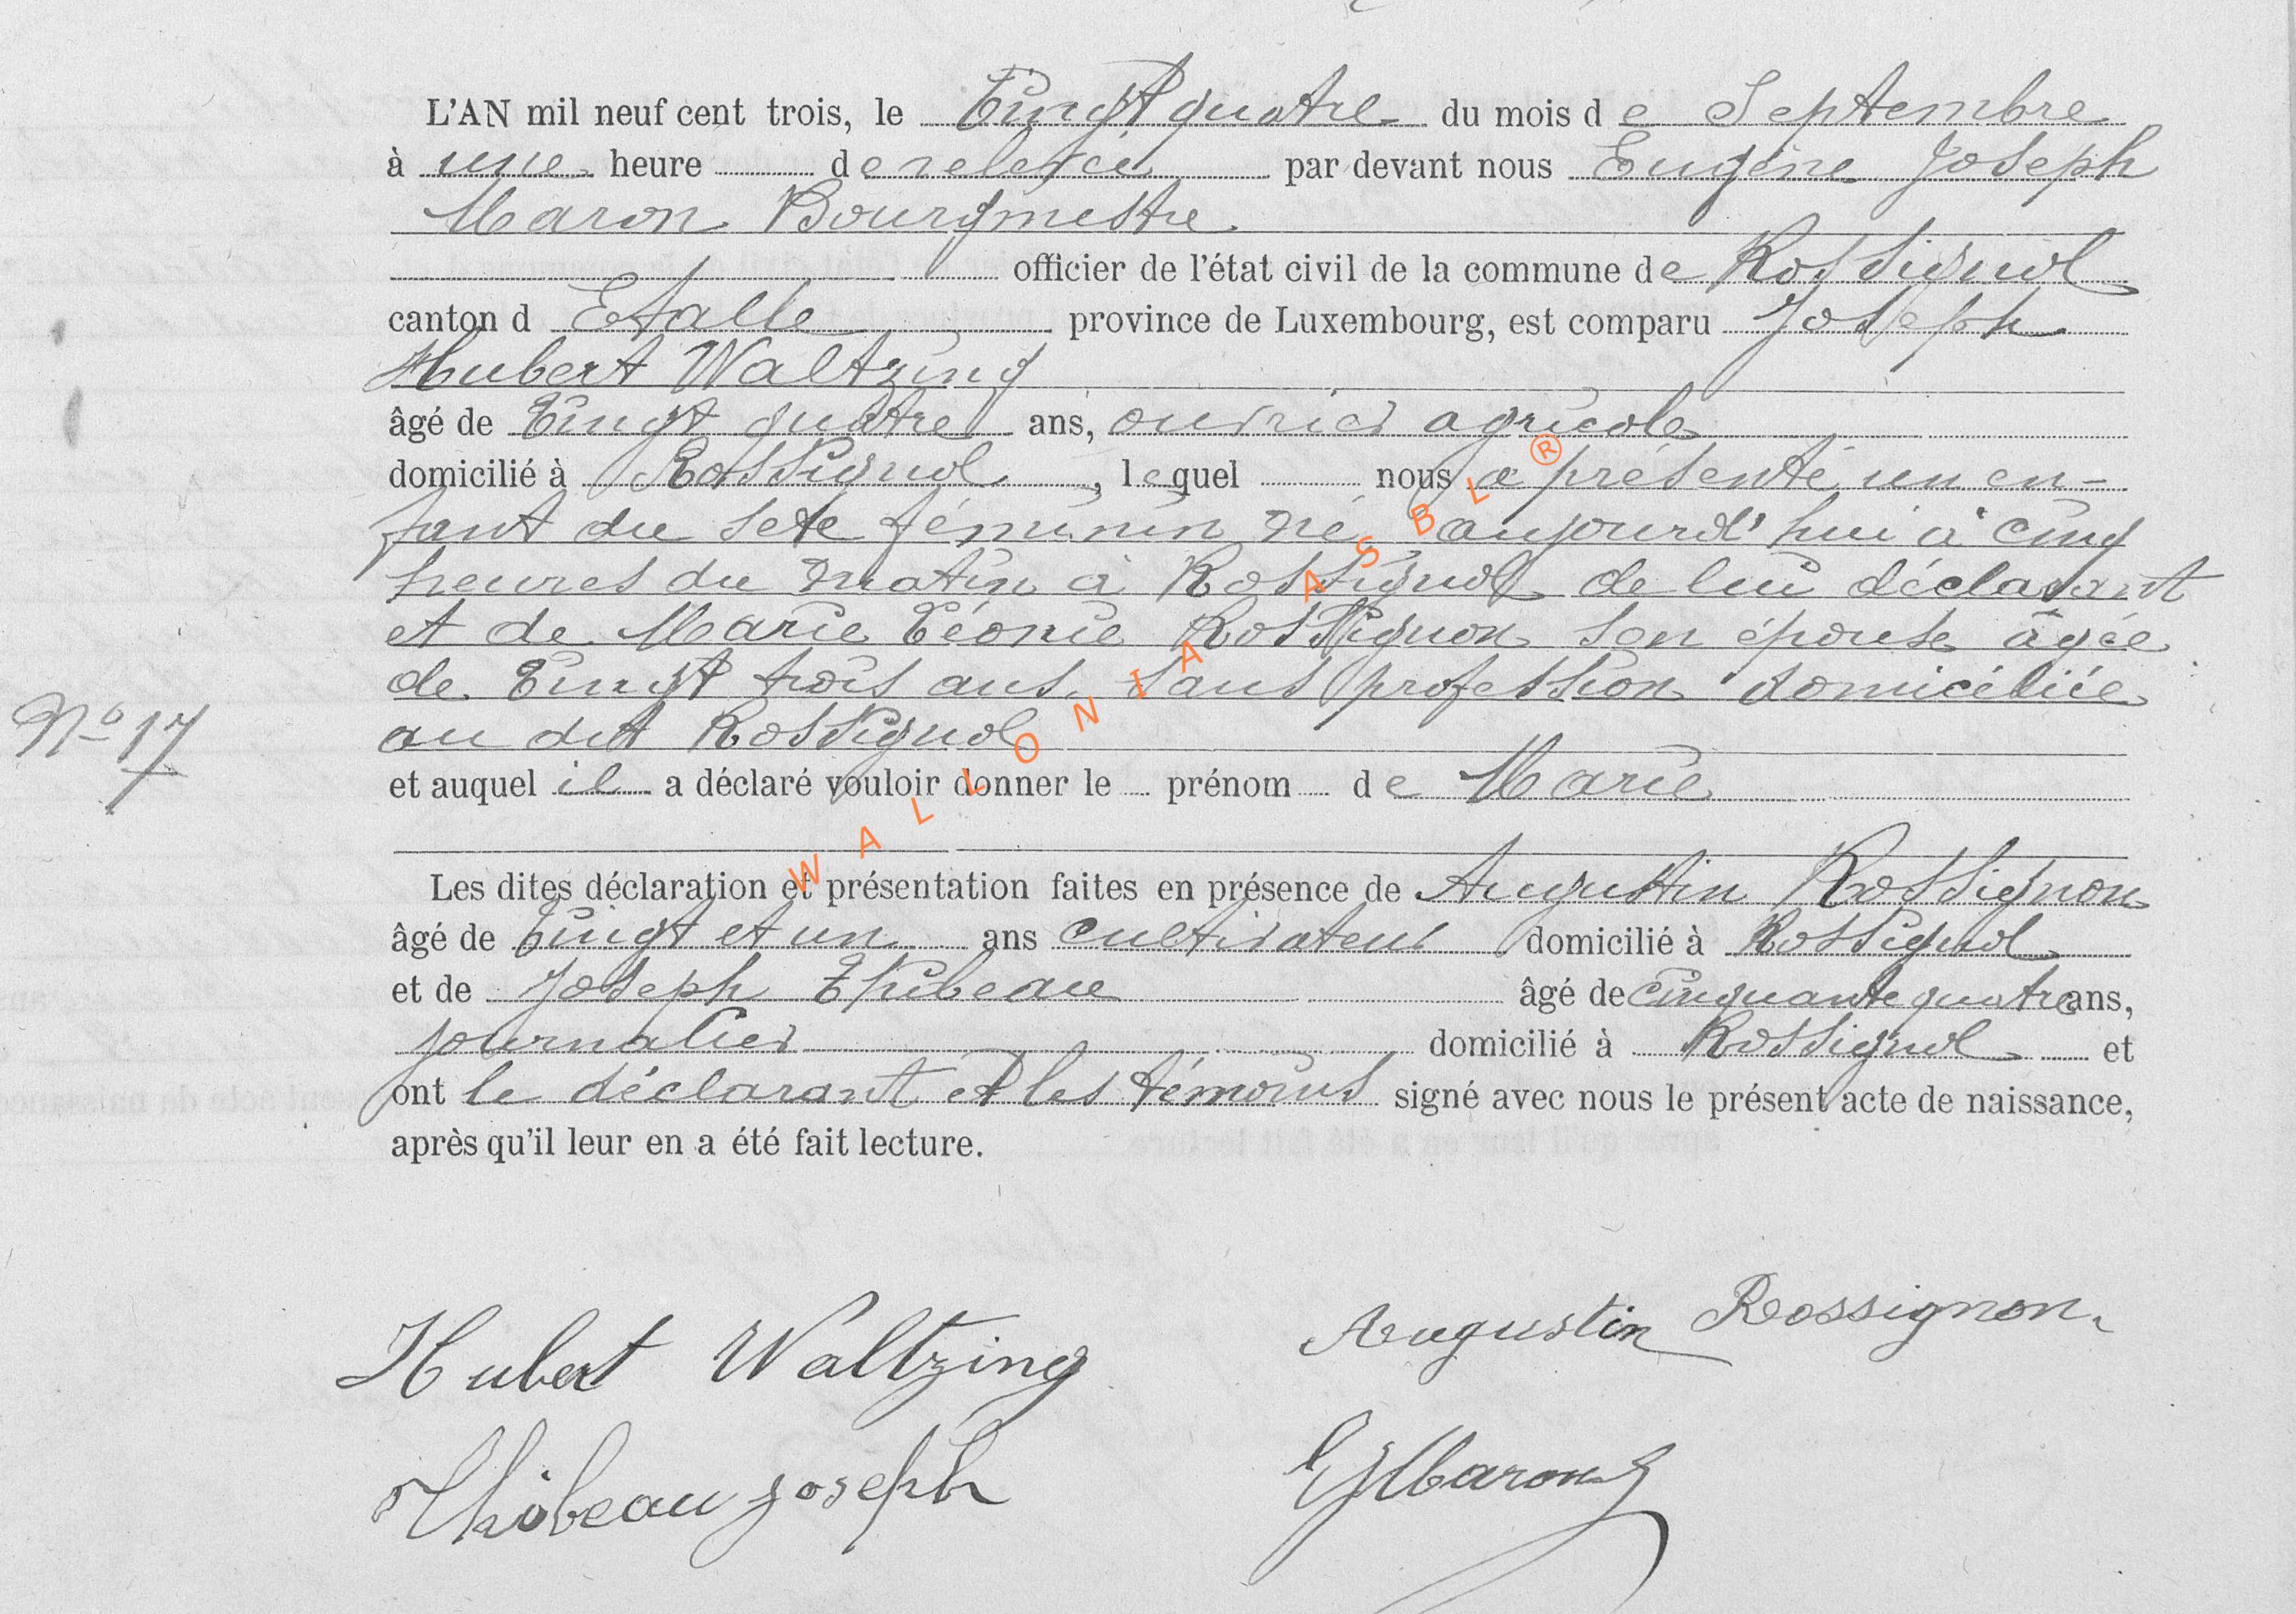 L'AN mil neuf cent trois, le Vingt quatre du mois de Septembre
à une heure de relevée par devant nous Eugène Joseph
Maron Bourgmestre
officier de l'état civil de la commune de Rossignol
canton d Etalle province de Luxembourg, est comparu Joseph
Hubert Waltzing
âgé de Vingt quatre ans, ouvrier agricole
domicilié à Rossignol, lequel nous a présenté un en-
fant du sexe féminin né aujourd'hui à cinq
heures du matin à Rossignol de lui déclarant
et de Marie Léonie Rossignon son épouse âgée
de Vingt trois ans, sans profession domiciliée
Nº 17
au dit Rossignol
et auquel il a déclaré vouloir donner le prénom de Marie
Les dites déclaration et présentation faites en présence de Augustin Rossignon
âgé de Vingt et un ans cultivateur domicilié à Rossignol
et de Joseph Thibeau âgé de cinquante quatre ans,
journalier domicilié à Rossignol et
ont le déclarant et les témoins signé avec nous le présent acte de naissance,
après qu'il leur en a été fait lecture.
Hubert Waltzing Augustin Rossignon
Thibeau Joseph EJMaron
WALLONIA ASBL ®